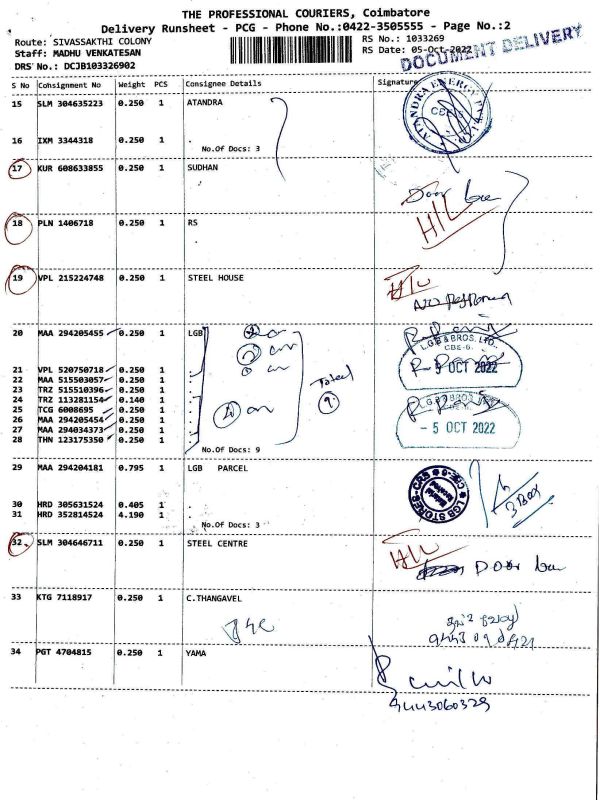 THE PROFESSIONAL COURIERS, Coimbatore
Delivery Runsheet - PCG - Phone No.:0422-3505555 - Page No.:2
Route: SIVASSAKTHI COLONY RS No.: 1033269
Staff: MADHU VENKATESAN RS Date: 05-Oct-2022
DRS No.: DCJB103326902
DOCUMENT DELIVERY
S No Cohsignment No Weight PCS Consignee Details Signature
15 SLM 304635223 0.250 1 ATANDRA
16 IXM 3344318 0.250 1 .
No.Of Docs: 3
17 KUR 608633855 0.250 1 SUDHAN
Door
H/L
18 PLN 1406718 0.250 1 RS
19 VPL 215224748 0.250 1 STEEL HOUSE
20 MAA 294205455 0.250 1 LGB
L.G.B & BROS. LTD.,
CBE-6.
21 VPL 520750718 0.250 1 .
5 OCT 2022
22 MAA 515503057 0.250 1 .
23 TRZ 515510396 0.250 1 .
24 TRZ 113281154 0.140 1 .
Total
9
25 TCG 6008695 0.250 1 .
26 MAA 294205454 0.250 1 .
27 MAA 294034373 0.250 1 .
- 5 OCT 2022
28 THN 123175350 0.250 1 .
No.Of Docs: 9
29 MAA 294204181 0.795 1 LGB PARCEL
LGB STORES-CRB
CBE-6
3 Box
30 HRD 305631524 0.405 1 .
31 HRD 352814524 4.190 1 .
No.Of Docs: 3
32 SLM 304646711 0.250 1 STEEL CENTRE
Door
33 KTG 7118917 0.250 1 C.THANGAVEL
34 PGT 4704815 0.250 1 YAMA
9443060329